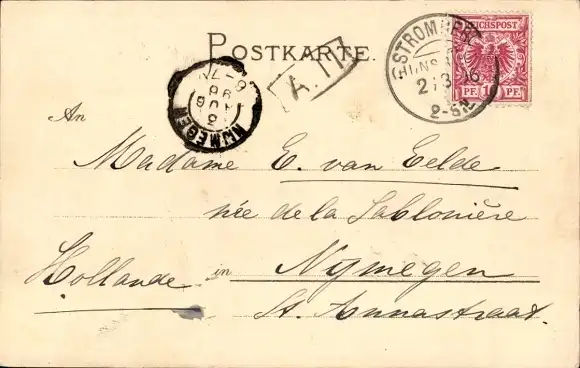 POSTKARTE.
STROMBERG
HUNSR
2-3
REICHSPOST
PF. 10 PF.
NIJMEGEN
3 AUG
96
6-7N
An
Madame E. van Eelde
née de la Sablonière
Hollande in Nijmegen
St. Annastraat.